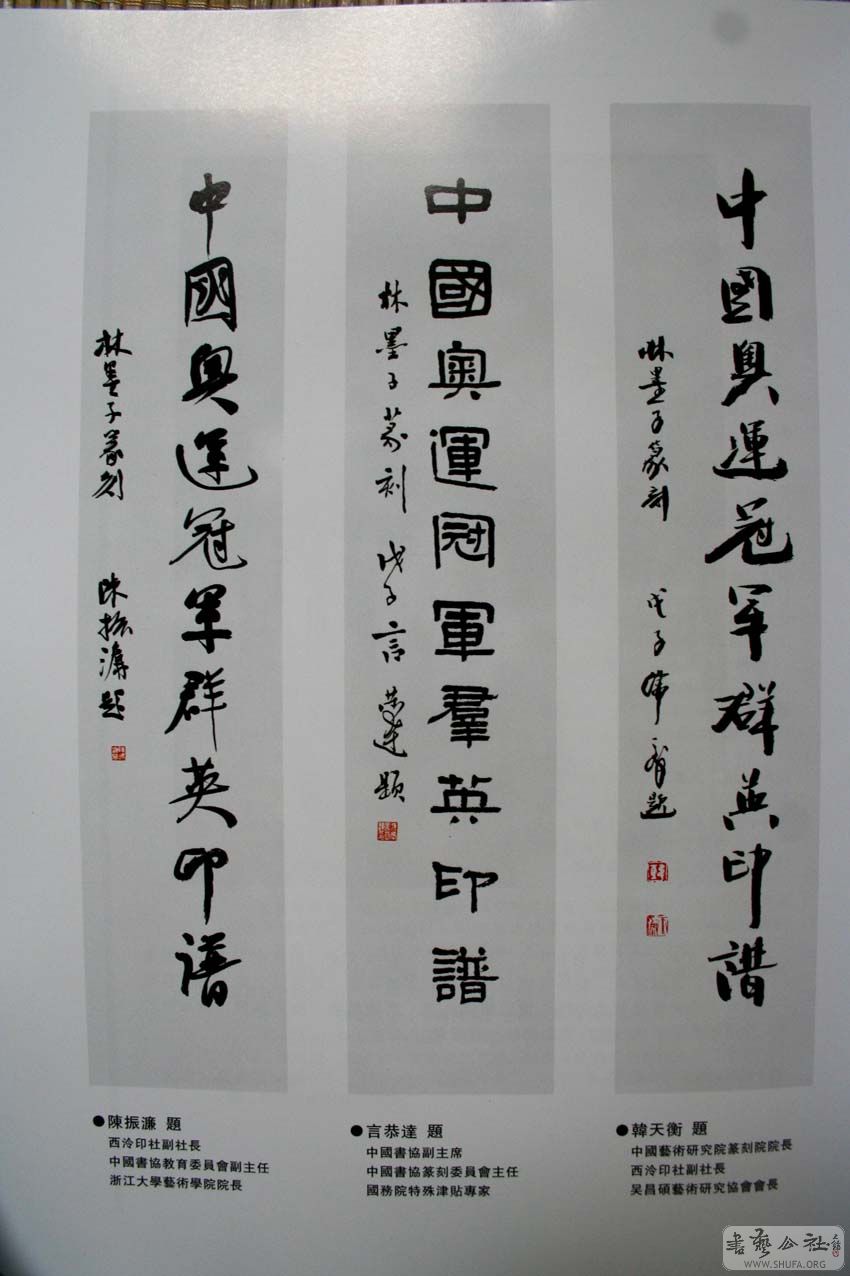 中國奧運冠軍群英印譜
林墨子篆刻 戊子韓天衡題
中國奧運冠軍羣英印譜
林墨子篆刻 戊子言恭達題
中國奧運冠軍群英印譜
林墨子篆刻 陳振濂題
●陳振濂 題
西泠印社副社長
中國書協教育委員會副主任
浙江大學藝術學院院長
●言恭達 題
中國書協副主席
中國書協篆刻委員會主任
國務院特殊津貼專家
●韓天衡 題
中國藝術研究院篆刻院院長
西泠印社副社長
吴昌碩藝術研究協會會長
書藝公社
WWW.SHUFA.ORG